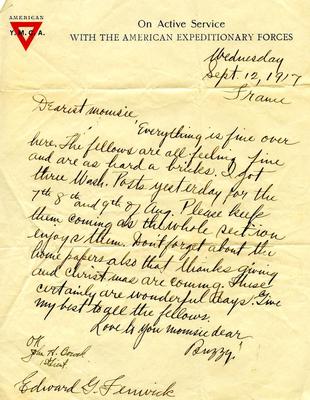 AMERICAN
Y.M.C.A.
On Active Service
WITH THE AMERICAN EXPEDITIONARY FORCES
Wednesday
Sept. 12, 1917
France
Dearest momsie,
Everything is fine over
here. The fellows are all feeling fine
and are as hard a bricks. I got
three Wash. Posts yesterday for the
7th 8th and 9th of Aug. Please keep
them coming as the whole section
enjoys them. Don't forget about the
home papers also that thanks giving
and Christmas are coming. These
certainly are wonderful days. Give
my best to all the fellows.
Love to you momsie dear
Buzzy.
OK
John H.
Edward G. Fenwick